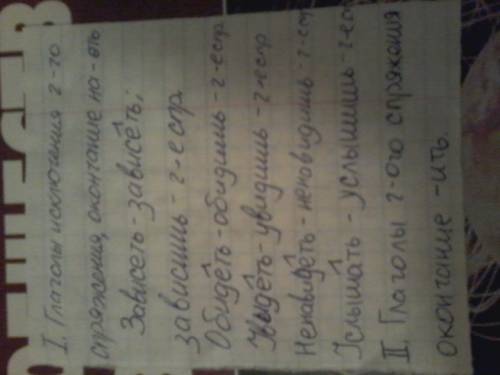 I. Глаголы исключения 2-го
спряжения, окончание на -еть
Зависеть - зависеть;
зависишь - 2-е спр.
Обидеть - обидишь - 2-е спр
Увидеть - увидишь - 2-е спр
Ненавидеть - ненавидишь - 2-е спр
Услышать - услышишь - 2-е сп
II. Глаголы 2-ого спряжения
окончание -ить.